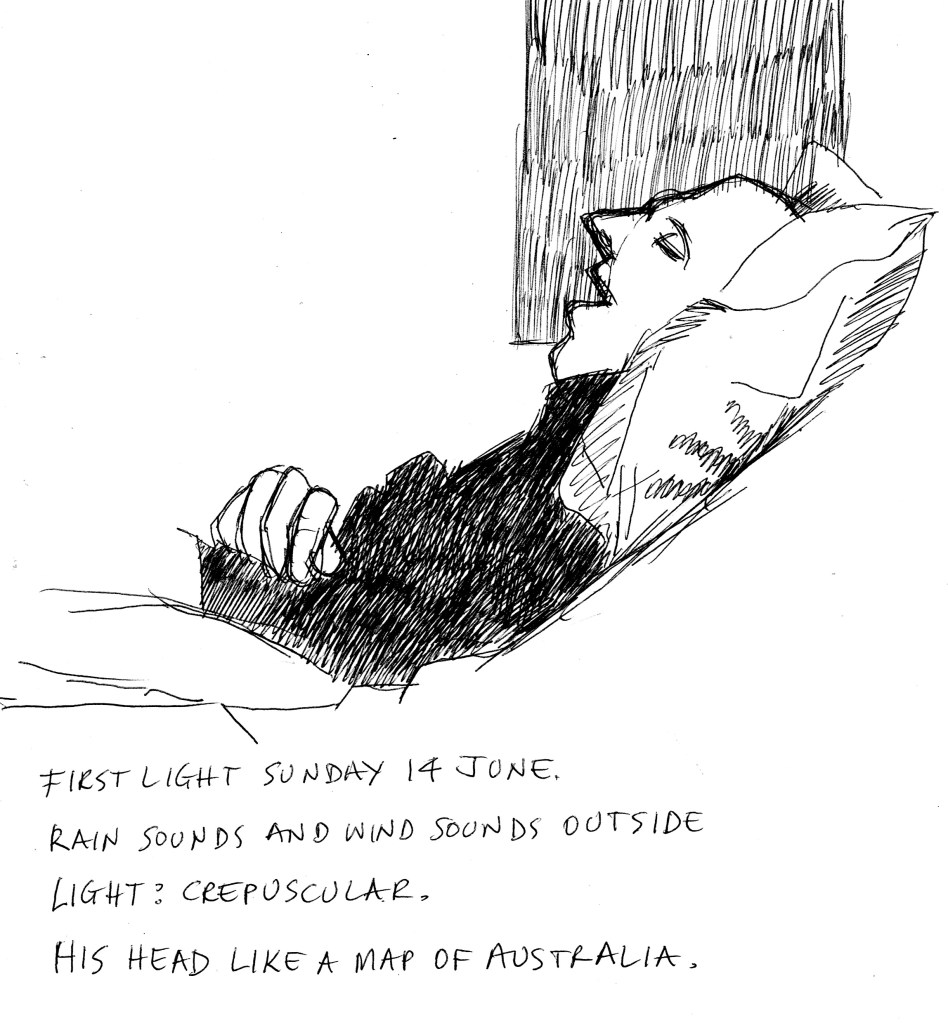 FIRST LIGHT SUNDAY 14 JUNE.
RAIN SOUNDS AND WIND SOUNDS OUTSIDE
LIGHT: CREPUSCULAR.
HIS HEAD LIKE A MAP OF AUSTRALIA.